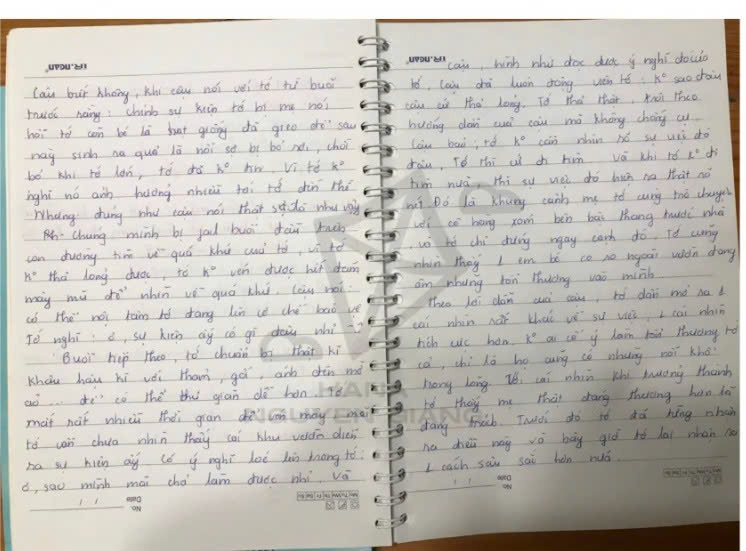 Cậu biết không, khi cậu nói với tớ từ buổi
trước rằng: chính sự kiện tớ bị mẹ nói
hồi tớ còn bé là hạt giống đã gieo để sau
này sinh ra quả là nỗi sợ bị bỏ rơi, chối
bỏ khi tớ lớn, tớ đã ko tin. Vì tớ ko
nghĩ nó ảnh hưởng nhiều tới tớ đến thế
Nhưng đúng như cậu nói thật sự là như vậy
Chúng mình bị fail buổi đầu trên
con đường tìm về quá khứ của tớ, vì tớ
ko thả lỏng được, tớ ko vén được hết đám
mây mù để nhìn về quá khứ. Cậu nói:
có thể nội tâm tớ đang lên cơ chế bảo vệ
Tớ nghĩ: ơ, sự kiện ấy có gì đâu nhỉ
Buổi tiếp theo, tớ chuẩn bị thật kĩ
khâu hậu kì với thảm, gối, ánh đèn mờ
ảo ... để có thể thư giãn dễ hơn. Tớ
mất rất nhiều thời gian để vén mây mà
tớ vẫn chưa nhìn thấy cái khu vườn diễn
ra sự kiện ấy. Có ý nghĩ loé lên trong tớ:
ơ, sao mình mãi chả làm được nhỉ. Và
No.
Date / /
cậu, hình như đọc được ý nghĩ đó của
tớ. Cậu đã luôn động viên tớ: ko sao đâu
cậu cứ thả lỏng. Tớ thả thật, trôi theo
hướng dẫn của cậu mà không chống cự.
Cậu bảo: tớ ko cần nhìn rõ sự việc đó
đâu. Tớ thì cứ đi tìm và khi tớ ko đi
tìm nữa, thì sự việc đó hiện ra thật rõ
nét. Đó là khung cảnh mẹ tớ cùng trò chuyện
với cô hàng xóm bên bậc thang trước nhà
, và tớ chỉ đứng ngay cạnh đó. Tớ cũng
nhìn thấy 1 em bé co ro ngoài vườn đang
ôm những tổn thương vào mình.
Theo lời dẫn của cậu, tớ dần mở ra 1
cái nhìn rất khác về sự việc, 1 cái nhìn
tích cực hơn. Ko ai cố ý làm tổn thương tớ
cả, chỉ là họ cũng có những nỗi khổ
trong lòng. Với cái nhìn khi trưởng thành
tớ thấy mẹ thật đáng thương hơn là
đáng trách. Trước đó tớ đã từng nhận
ra điều này và bây giờ tớ lại nhận ra
1 cách sâu sắc hơn nữa.
No.
Date / /
HANA
NGUYEN GIANG